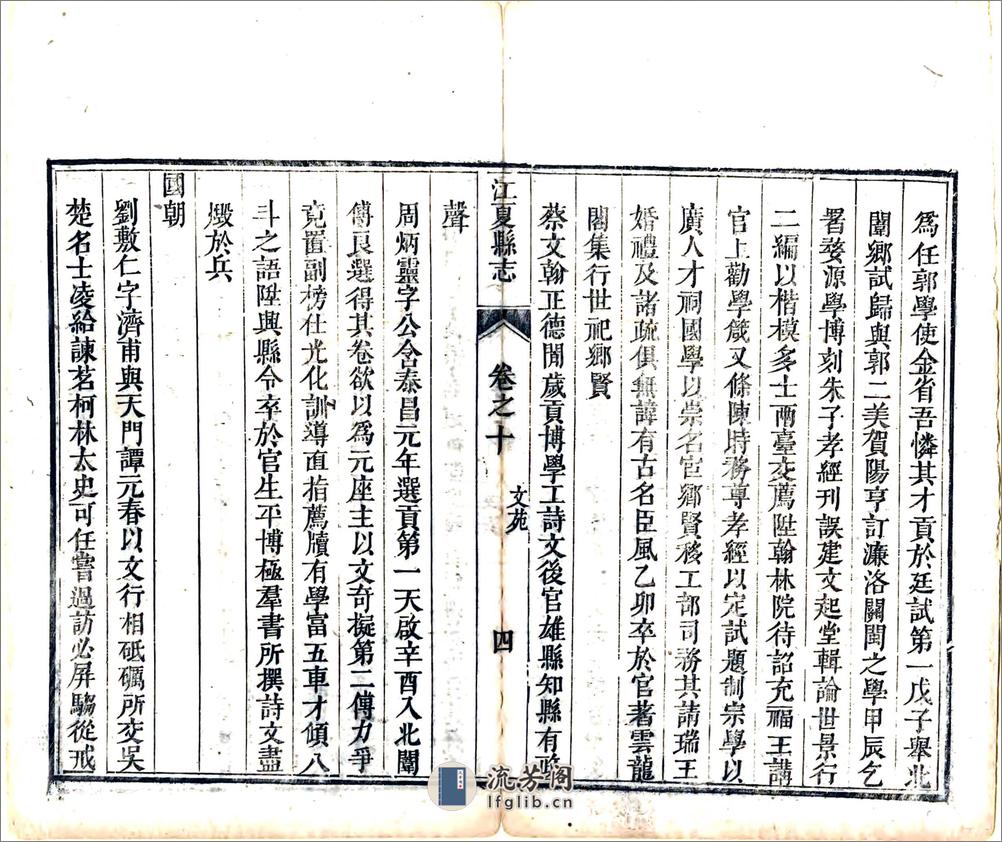 爲任郭學使金省吾憐其才貢於廷試第一戊子舉北
闈鄉試歸與郭二美賀陽亨訂濂洛關閩之學甲辰乞
署婺源學博刻朱子孝經刊誤建文起堂輯論世景行
二編以楷模多士兩臺交薦陞翰林院待詔充福王講
官上勸學箴又條陳時務尊孝經以定試題制宗學以
廣人才祠國學以崇名宦鄉賢移工部司務其請瑞王
婚禮及諸疏俱無諱有古名臣風乙卯卒於官著雲龍
閣集行世祀鄉賢
蔡文翰正德閒歲貢博學工詩文後官雄縣知縣有政
江夏縣志 卷之十 文苑 四
聲
周炳靈字公含泰昌元年選貢第一天啟辛酉入北闈
傅艮選得其卷欲以爲元座主以文奇擬第二傅力爭
竟置副榜仕光化訓導直指薦牘有學富五車才傾八
斗之語陞興縣令卒於官生平博極羣書所撰詩文盡
燬於兵
國朝
劉敷仁字濟甫與天門譚元春以文行相砥礪所交吳
楚名士凌給諫茗柯林太史可任嘗過訪必屏騶從戒
流芳阁
lfglib.cn